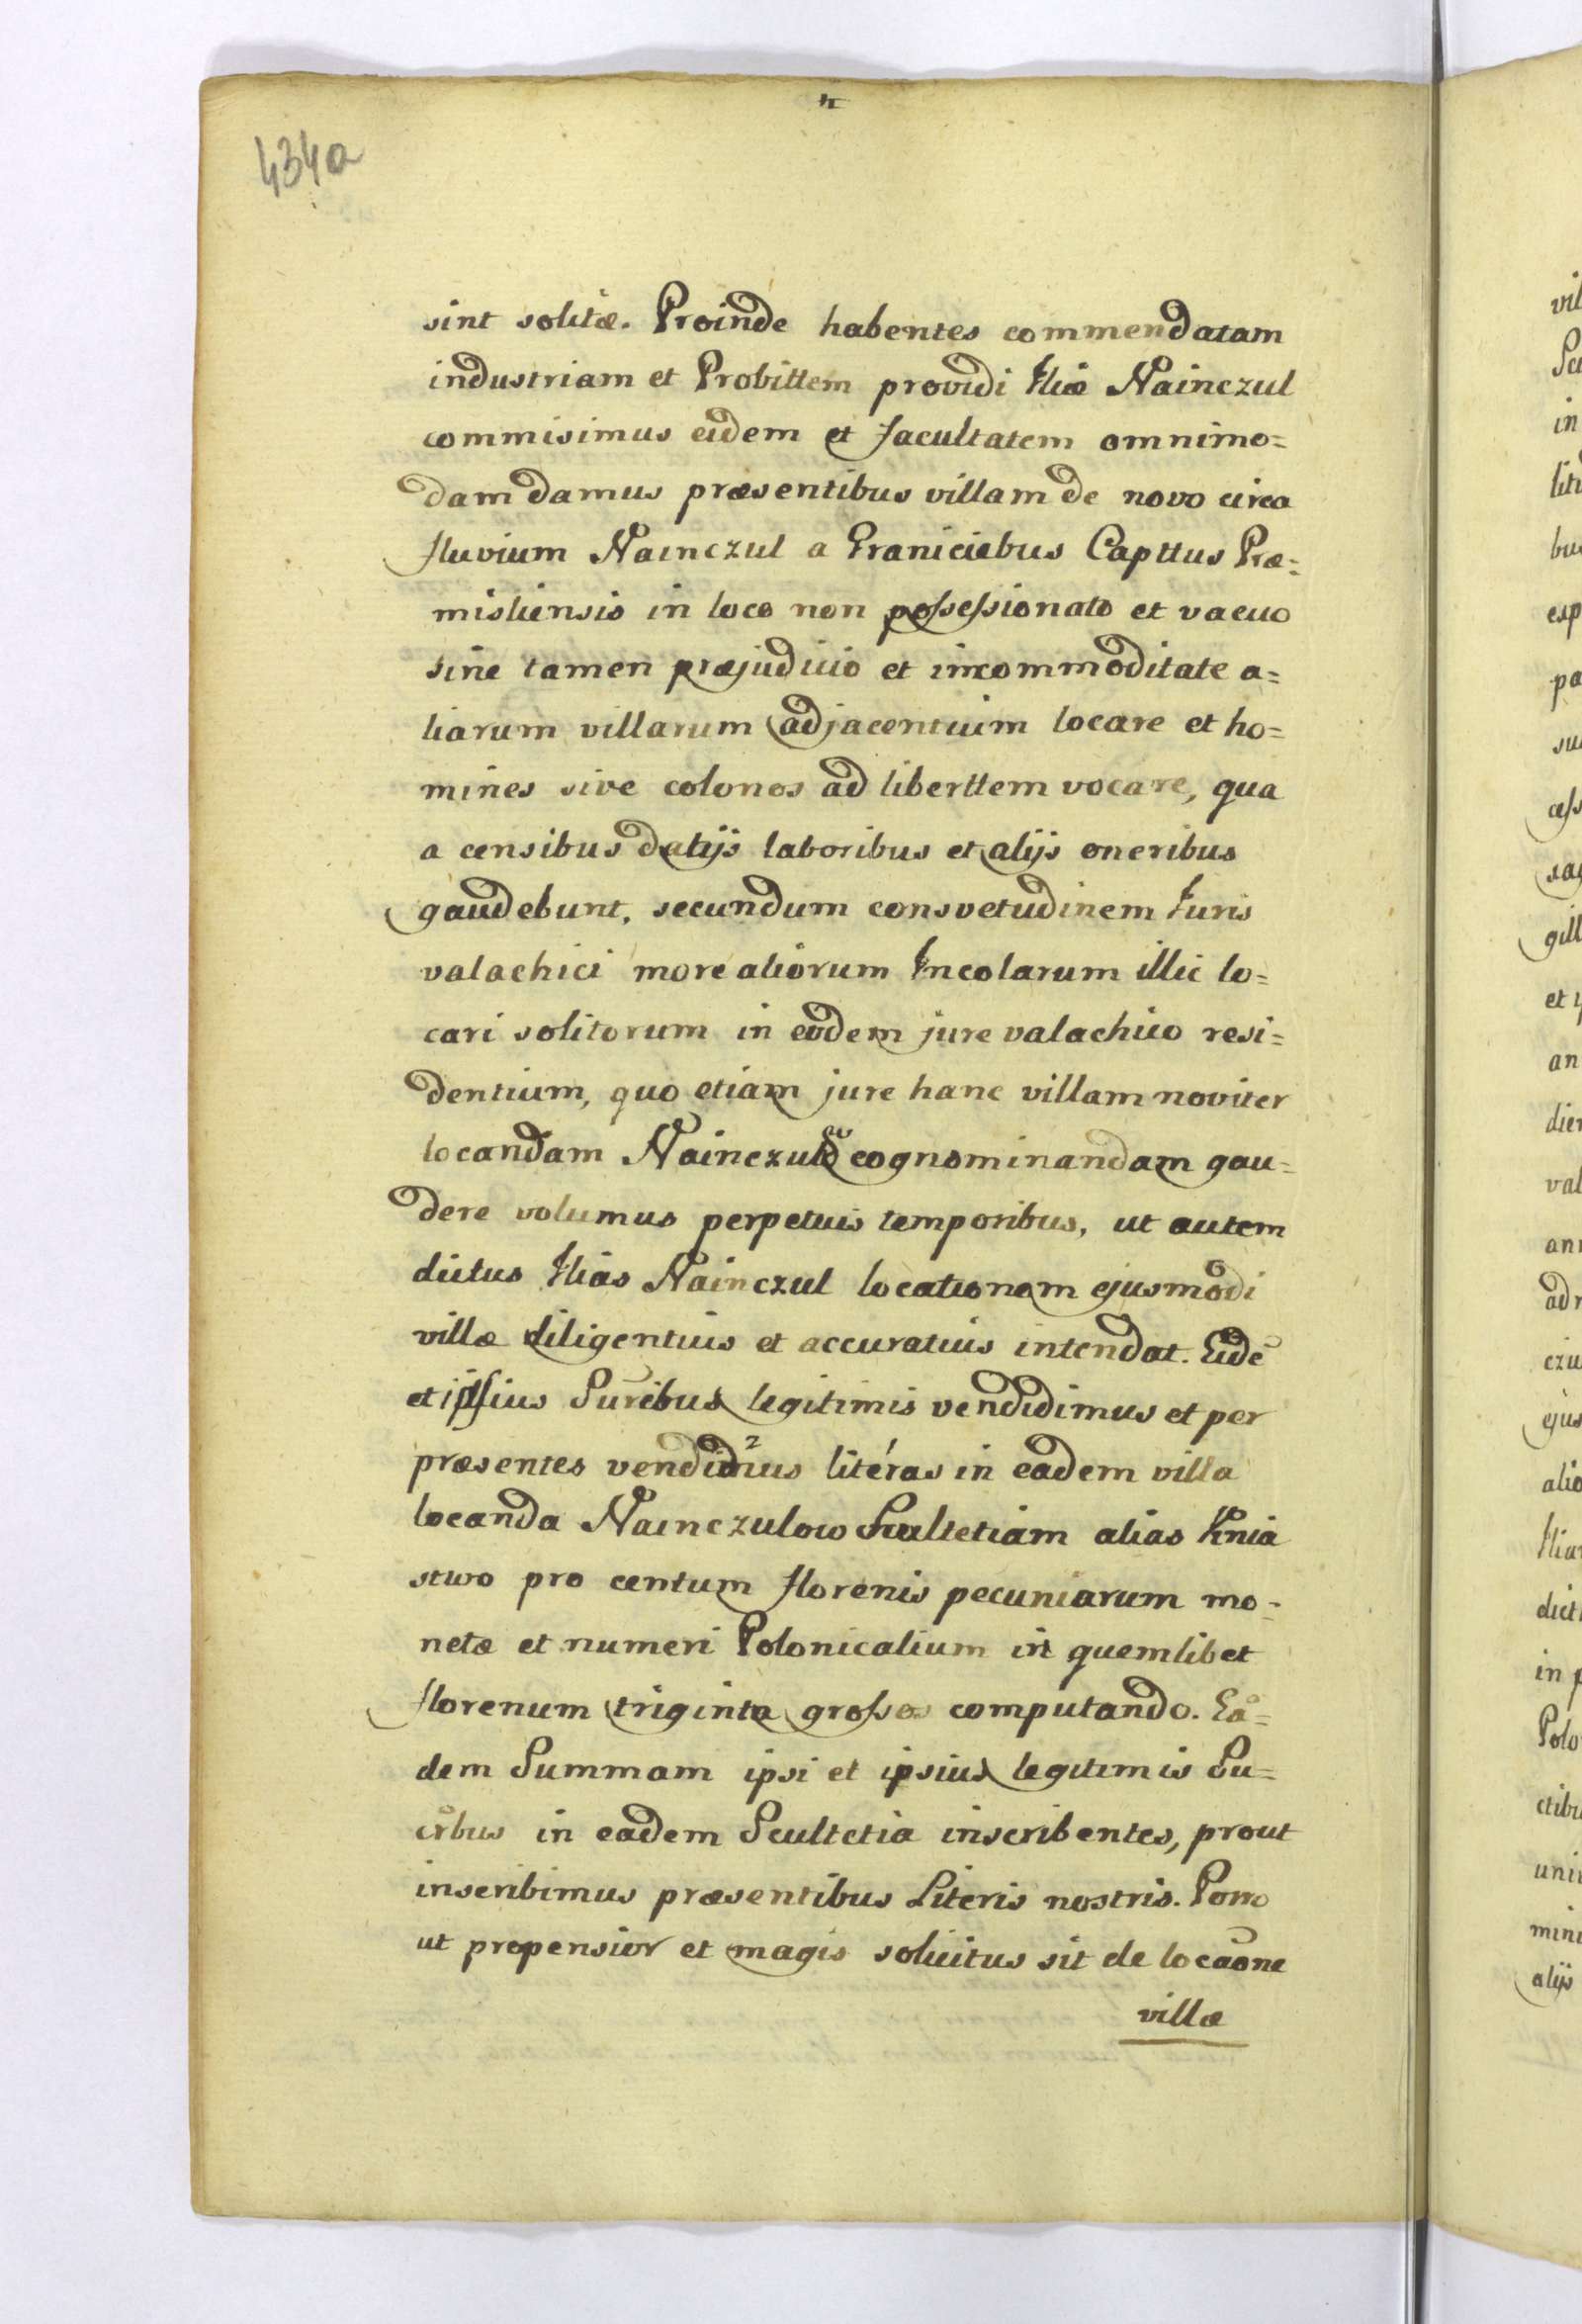 434a
sint solitæ. Proinde habentes commendatam
industriam et Probittem providi Iliæ Nainczul
commisimus eidem et facultatem omnimo=
dam damus præsentibus villam de novo circa
fluvium Nainczul a Graniciebus Capttus Præ=
misliensis in loco non possessionato et vacuo
sine tamen præjudicio et incommoditate a=
liarum villarum adjacentium locare et ho=
mines sive colonos ad liberttem vocare, qua
a censibus datijs laboribus et alijs oneribus
gaudebunt, secundum consvetudinem Juris
valachici more aliorum Incolarum illic lo=
cari solitorum in eodem jure valachico resi=
dentium, quo etiam jure hanc villam noviter
locandam cognominandam gau=
dere volumus perpetuis temporibus, ut autem
dictus Ilias Nainczul locationem ejusmodi
villæ diligentius et accuratius intendat. Eidē
et ipsius Suribus legitimis vendidimus et per
præsentes literas in eadem villa
locanda Nainczulow Scultetiam alias Knia
stwo pro centum florenis pecuniarum mo=
netæ et numeri Polonicalium in quemlibet
florenum triginta grossos computando. Ea=
dem Summam ipsi et ipsius legitimis Su=
crbus in eadem Scultetia inscribentes, prout
inscribimus præsentibus Literis nostris. Porro
ut propensior et magis solicitus sit de locaone
villæ